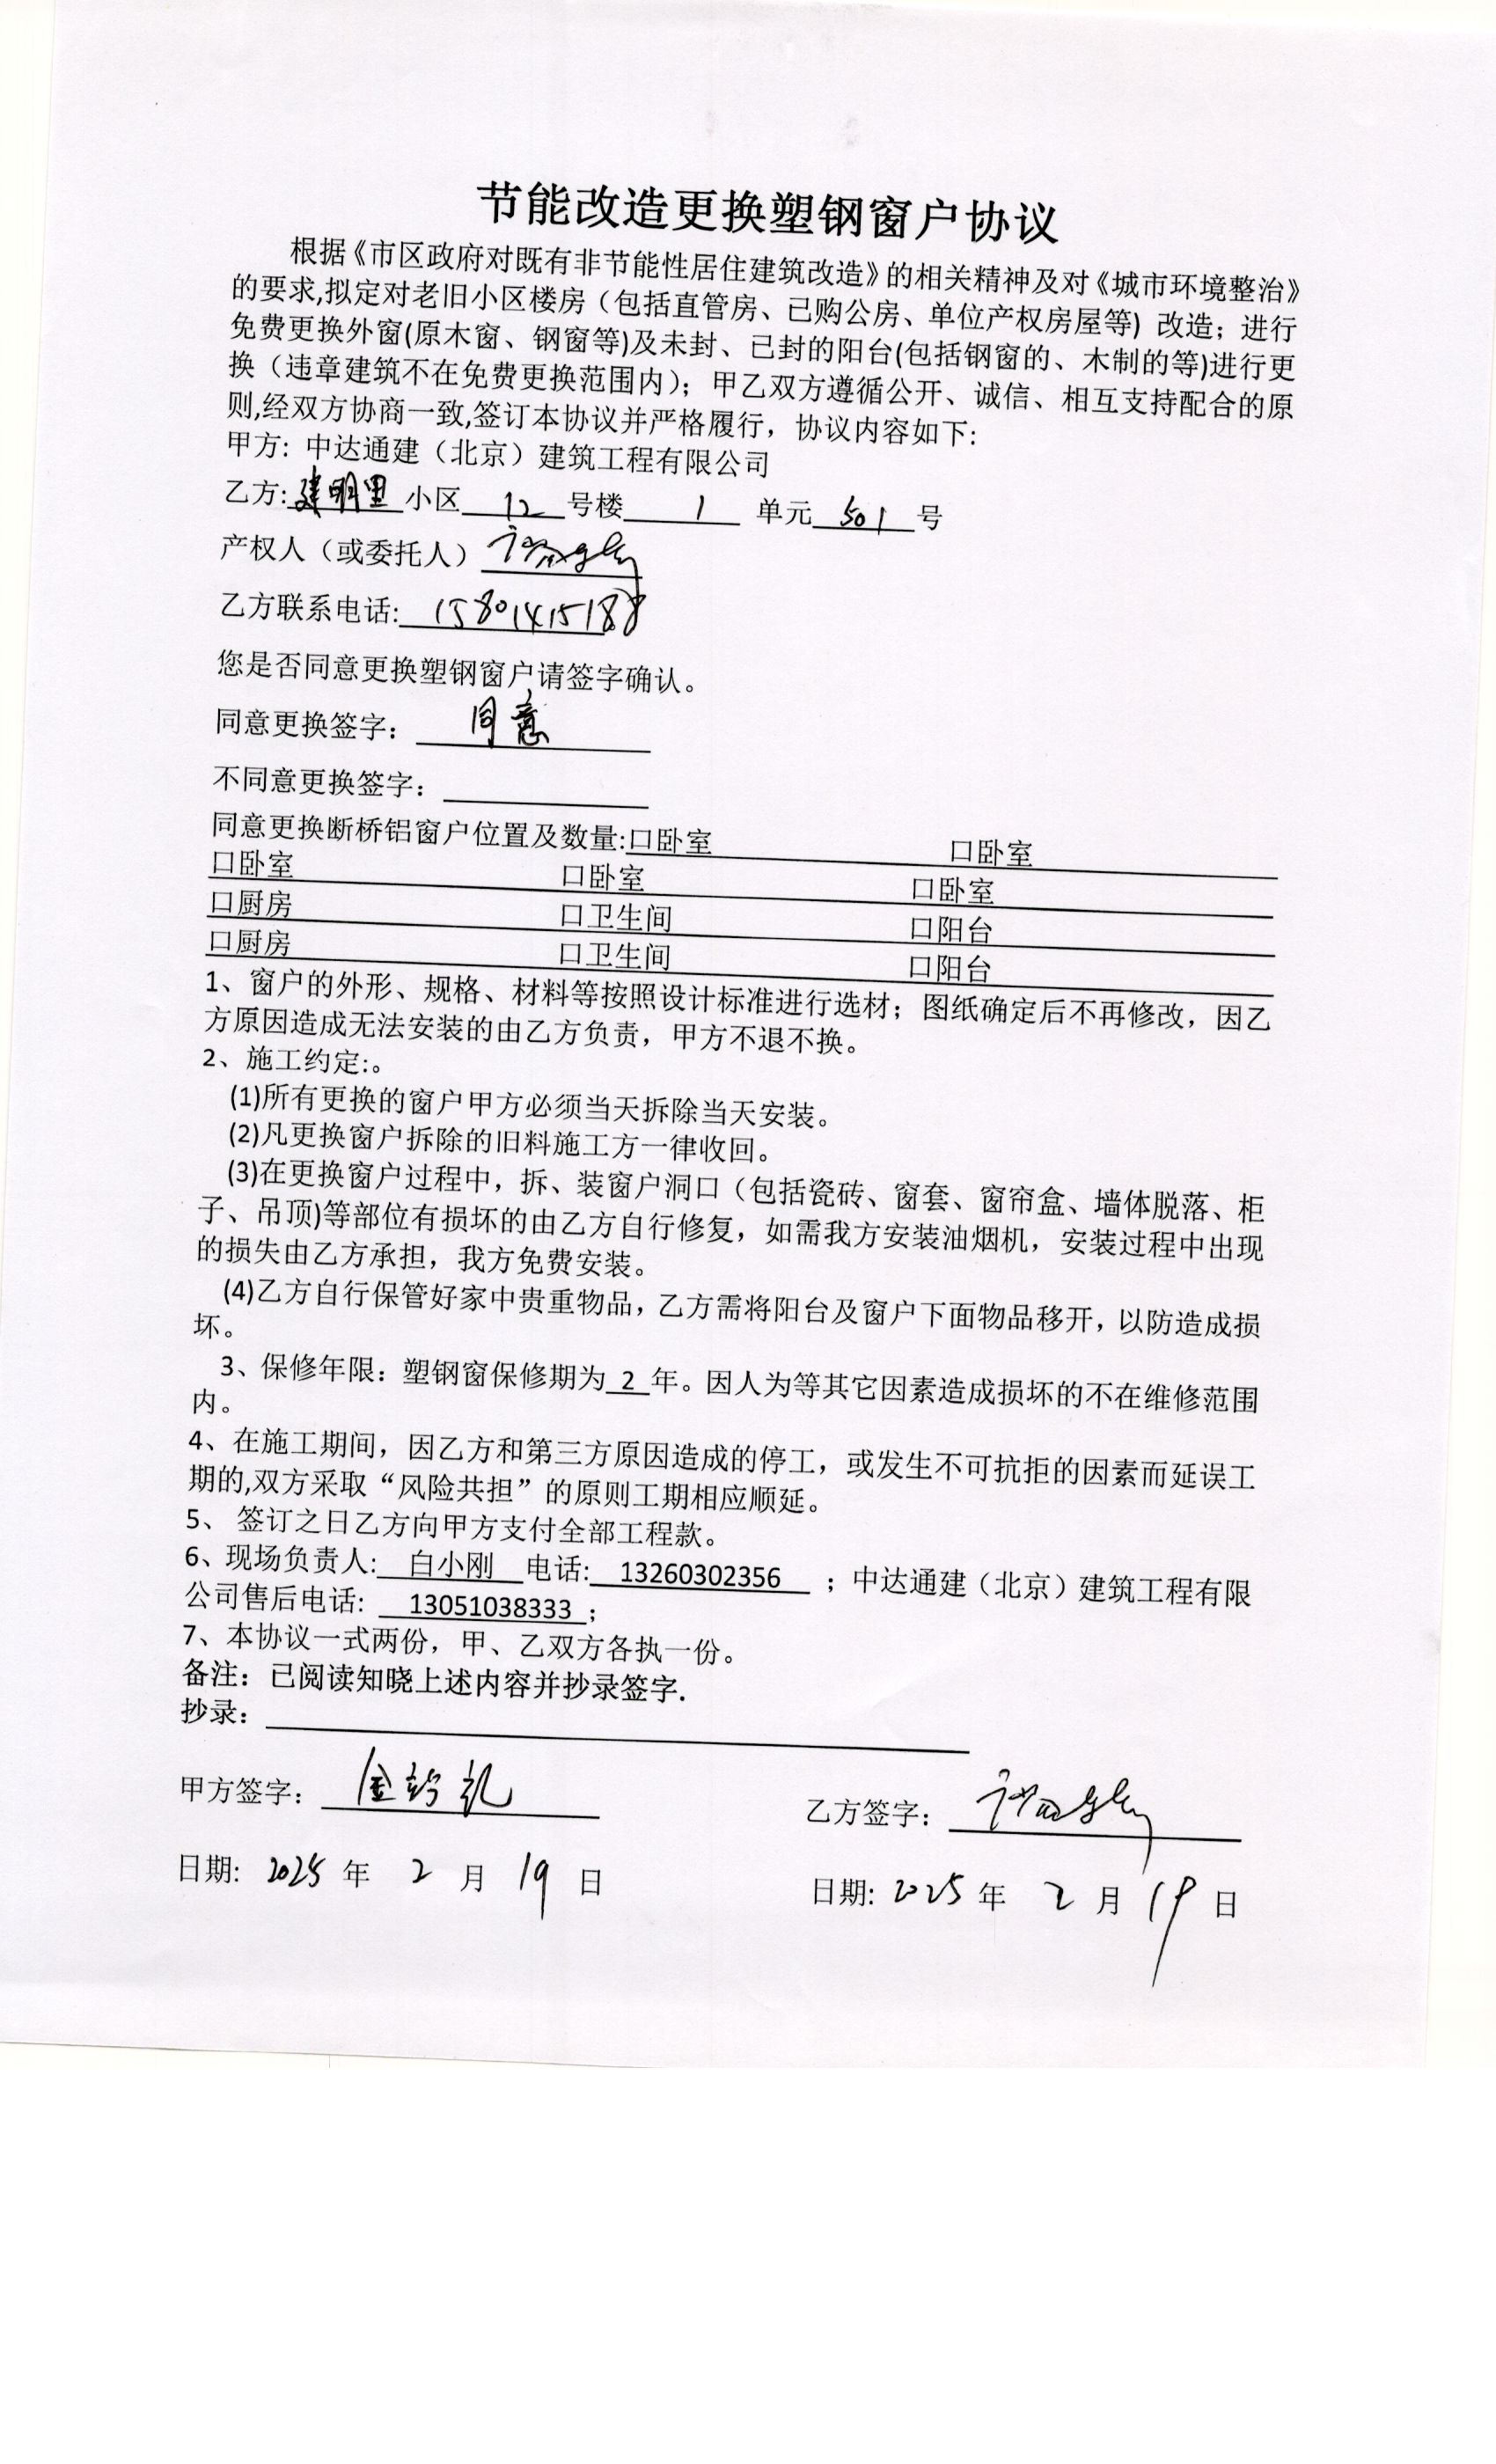 节能改造更换塑钢窗户协议
根据《市区政府对既有非节能性居住建筑改造》的相关精神及对《城市环境整治》
的要求,拟定对老旧小区楼房（包括直管房、已购公房、单位产权房屋等) 改造；进行
免费更换外窗(原木窗、钢窗等)及未封、已封的阳台(包括钢窗的、木制的等)进行更
换（违章建筑不在免费更换范围内）；甲乙双方遵循公开、诚信、相互支持配合的原
则,经双方协商一致,签订本协议并严格履行，协议内容如下:
甲方: 中达通建（北京）建筑工程有限公司
乙方: 建明里 小区 12 号楼 1 单元 501 号
产权人（或委托人）
乙方联系电话: 15801415188
您是否同意更换塑钢窗户请签字确认。
同意更换签字： 同意
不同意更换签字：
同意更换断桥铝窗户位置及数量:口卧室 口卧室
口卧室 口卧室 口卧室
口厨房 口卫生间 口阳台
口厨房 口卫生间 口阳台
1、窗户的外形、规格、材料等按照设计标准进行选材；图纸确定后不再修改，因乙
方原因造成无法安装的由乙方负责，甲方不退不换。
2、施工约定:。
(1)所有更换的窗户甲方必须当天拆除当天安装。
(2)凡更换窗户拆除的旧料施工方一律收回。
(3)在更换窗户过程中，拆、装窗户洞口（包括瓷砖、窗套、窗帘盒、墙体脱落、柜
子、吊顶)等部位有损坏的由乙方自行修复，如需我方安装油烟机，安装过程中出现
的损失由乙方承担，我方免费安装。
(4)乙方自行保管好家中贵重物品，乙方需将阳台及窗户下面物品移开，以防造成损
坏。
3、保修年限：塑钢窗保修期为 2 年。因人为等其它因素造成损坏的不在维修范围
内。
4、在施工期间，因乙方和第三方原因造成的停工，或发生不可抗拒的因素而延误工
期的,双方采取“风险共担”的原则工期相应顺延。
5、 签订之日乙方向甲方支付全部工程款。
6、现场负责人: 白小刚 电话: 13260302356 ；中达通建（北京）建筑工程有限
公司售后电话: 13051038333 ；
7、本协议一式两份，甲、乙双方各执一份。
备注：已阅读知晓上述内容并抄录签字.
抄录：
甲方签字： 乙方签字：
日期: 2025 年 2 月 19 日 日期: 2025 年 2 月 19 日